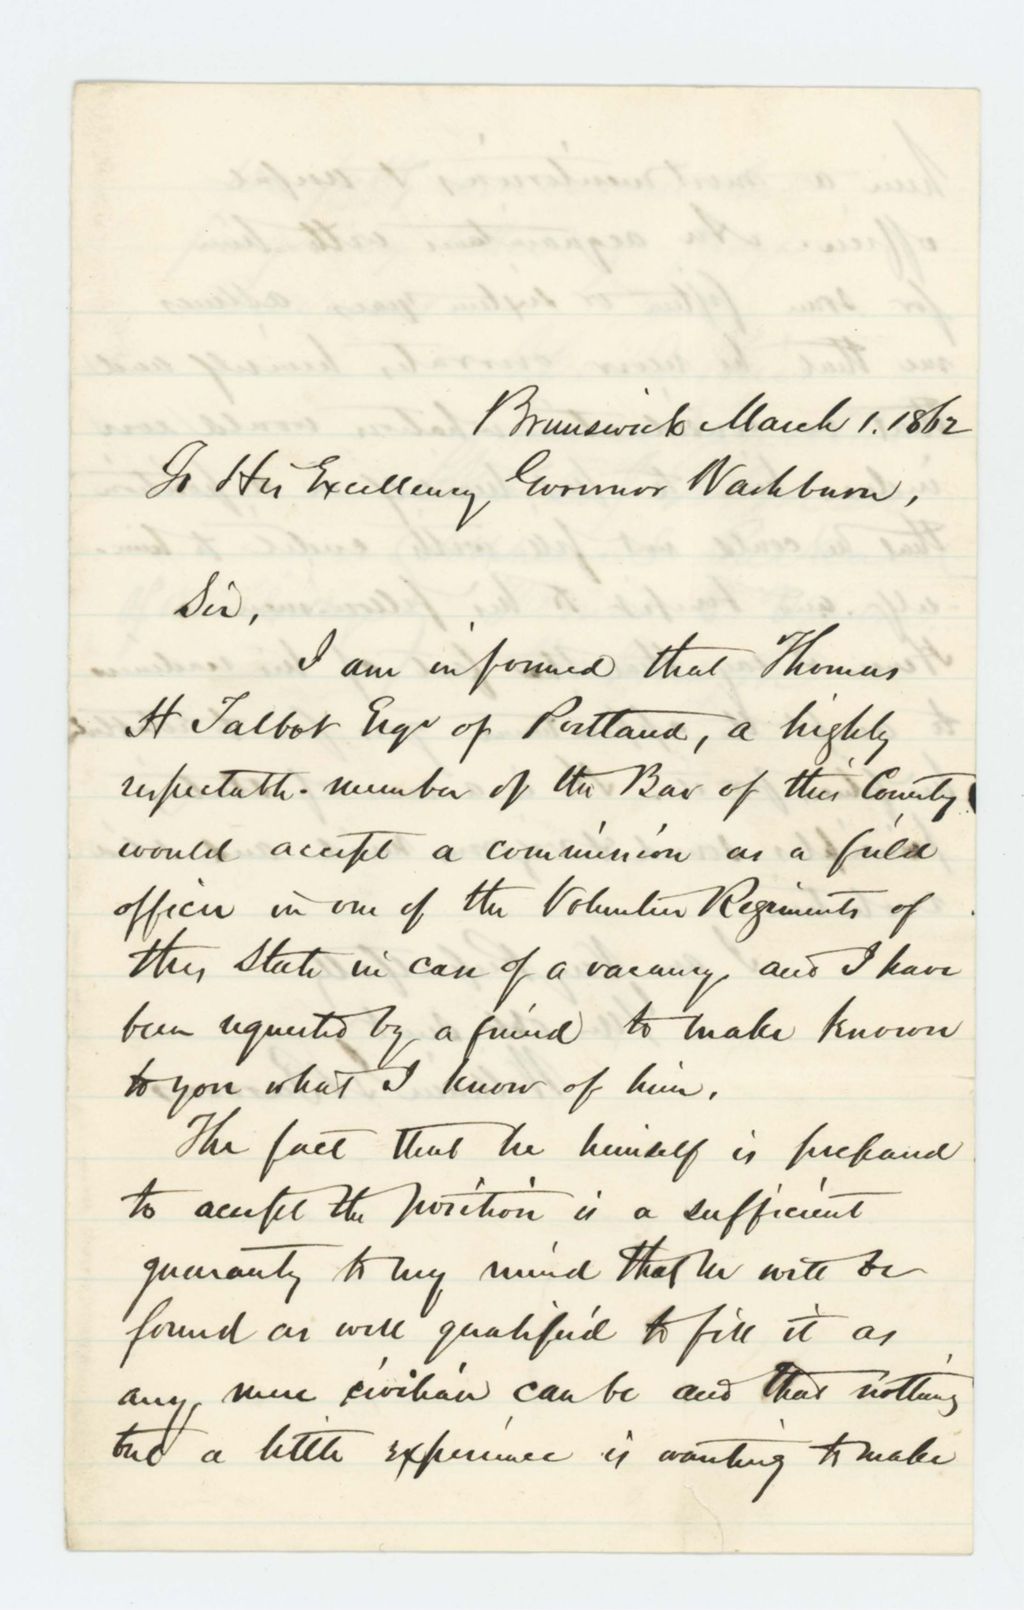 Brunswick March 1. 1862
To His Excellency, Governor Washburn,
Sir,
I am informed that Thomas
H Talbot Esqr of Portland, a highly
respectable member of the Bar of this County
would accept a commission as a field
officer in one of the Volunteer Regiments of
this State in case of a vacancy, and I have
been requested by a friend to make known
to you what I know of him.
The fact that he himself is prepared
to accept the position is a sufficient
guaranty to my mind that he will be
found as well qualified to fill it as
any mere civilian can be and that nothing
but a little experience is wanting to make